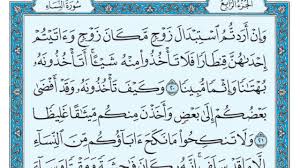 الجُزْءُ الرَّابِعُ سُورَةُ النِّسَاءِ
وَإِنْ أَرَدتُّمُ ٱسْتِبْدَالَ زَوْجٍ مَّكَانَ زَوْجٍ وَءَاتَيْتُمْ
إِحْدَىٰهُنَّ قِنطَارًا فَلَا تَأْخُذُوا۟ مِنْهُ شَيْـًٔا ۚ أَتَأْخُذُونَهُۥ
بُهْتَـٰنًا وَإِثْمًا مُّبِينًا ٢٠ وَكَيْفَ تَأْخُذُونَهُۥ وَقَدْ أَفْضَىٰ
بَعْضُكُمْ إِلَىٰ بَعْضٍ وَأَخَذْنَ مِنكُم مِّيثَـٰقًا غَلِيظًا
٢١ وَلَا تَنكِحُوا۟ مَا نَكَحَ ءَابَآؤُكُم مِّنَ ٱلنِّسَآءِ